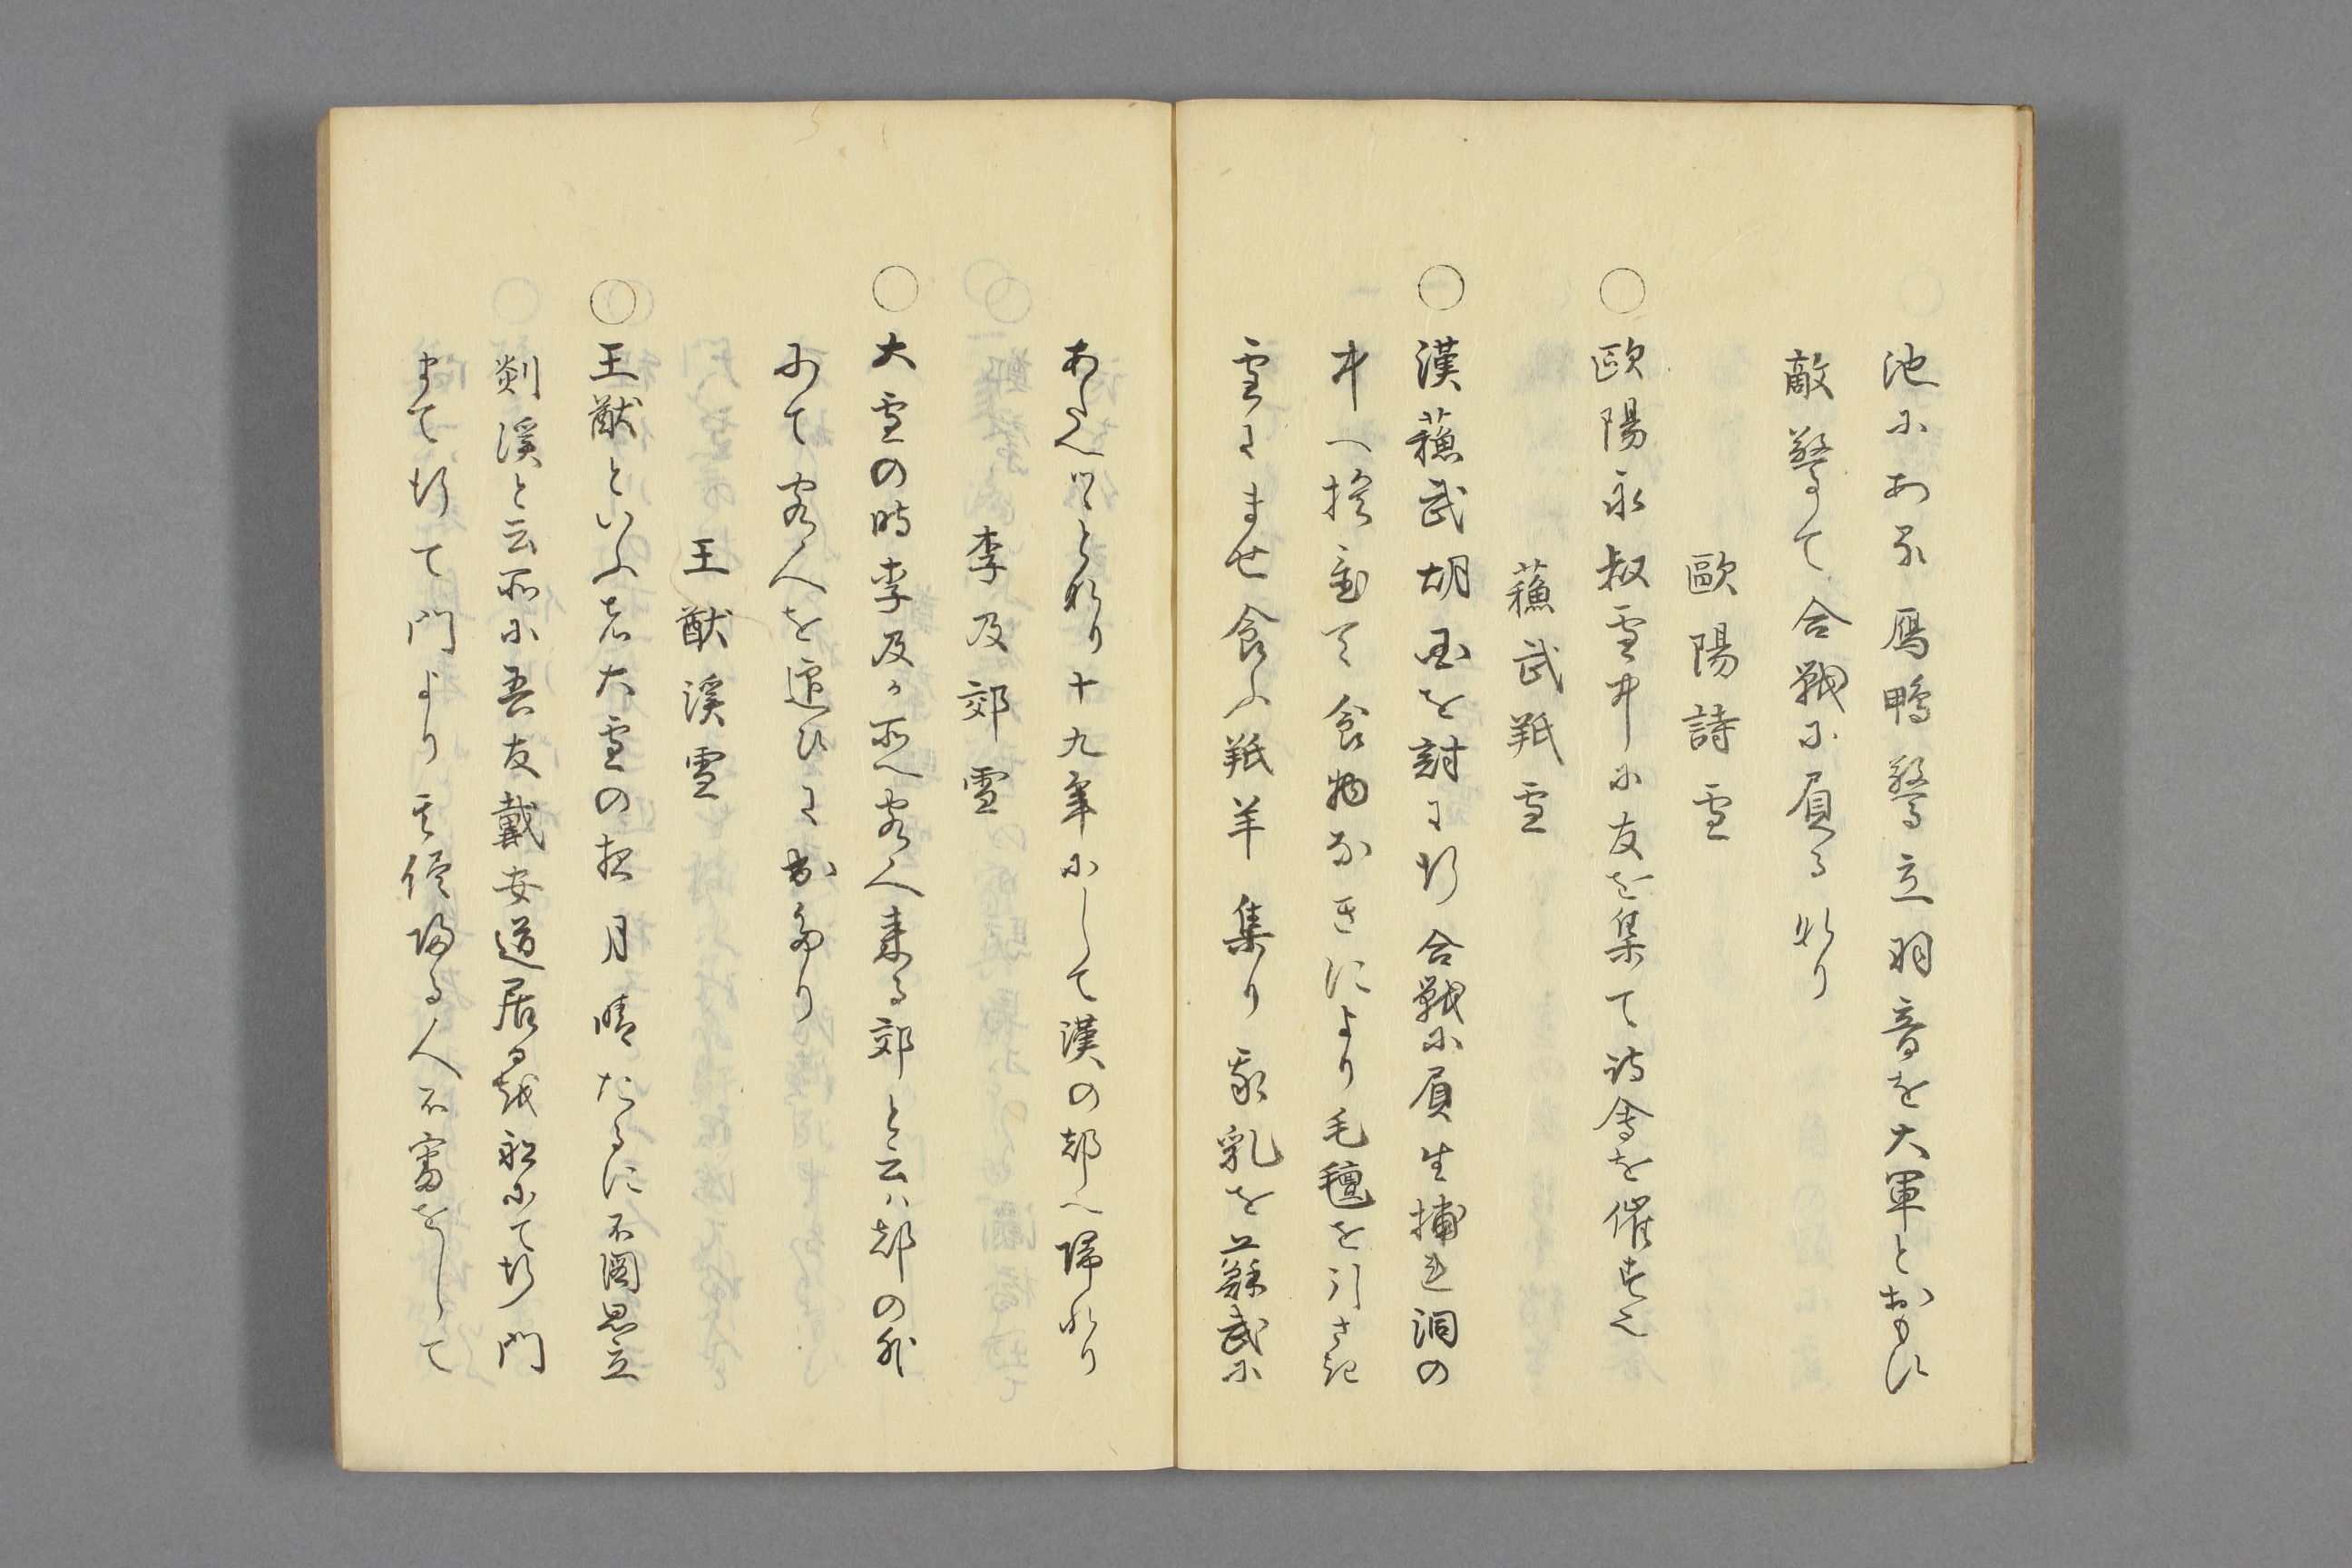 池にある鳫鴨驚立羽音を大軍とおもひ
敵驚て合戦に負るなり
歐陽詩雪
○歐陽永叔雪中に友を集て詩会を催す也
蘓武羝雪
○漢蘓武胡国を討に行合戦に負生捕れ洞の
中へ捨置て食物なきにより毛氈を引さき
雪にませ食ふ羝羊集り我乳を蘓武に
あたへしとなり十九年にして漢の都へ帰れり
李及郊雪
○大雪の時李及か所へ客人来る郊と云ハ都の外
にて客人を迎ひに出たり
王猷渓雪
○王猷といふ者大雪の夜月晴たるに不図思立
剡渓と云所に吾友戴安道居る故船にて行門
まて行て門より其侭帰る人不審をして